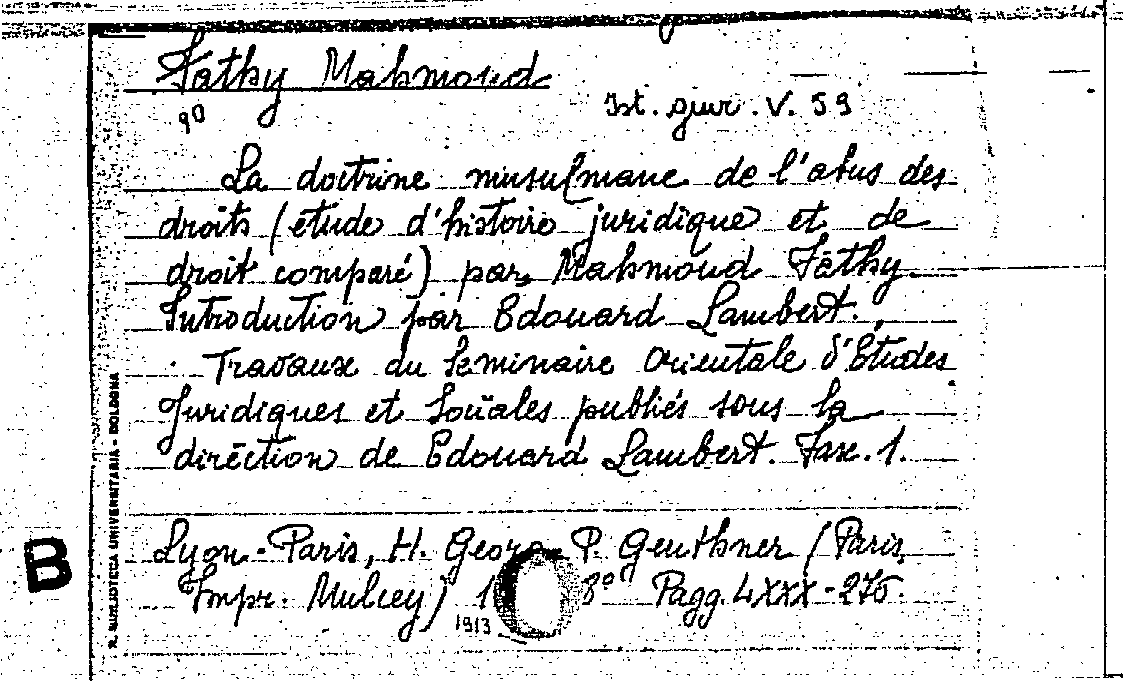 Fathy Mahmoud
90
Ist. giur. V. 59
La doctrine musulmane de l'abus des
droits (étude d'histoire juridique et de
droit comparé) par Mahmoud Fathy.
Introduction par Edouard Lambert.
Travaux du Seminaire Orientale d'Etudes
Juridiques et Sociales publiés sous la
direction de Edouard Lambert. Fasc. 1.
Lyon-Paris, H. Georg-P. Geuthner (Paris,
Impr. Mulcey) 1 8° Pagg. LXXX-276.
1913
B
R. BIBLIOTECA UNIVERSITARIA - BOLOGNA